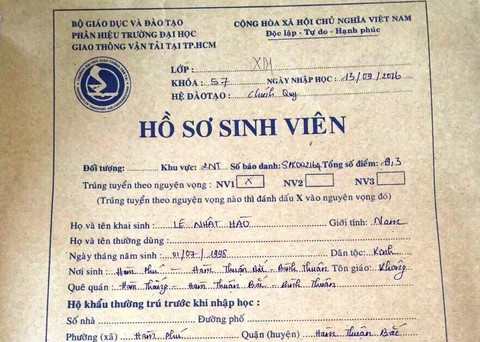 BỘ GIÁO DỤC VÀ ĐÀO TẠO
PHÂN HIỆU TRƯỜNG ĐẠI HỌC
GIAO THÔNG VẬN TẢI TẠI TP.HCM
CỘNG HÒA XÃ HỘI CHỦ NGHĨA VIỆT NAM
Độc lập - Tự do - Hạnh phúc
LỚP :
KHÓA : 57 NGÀY NHẬP HỌC : 13/09/2016
HỆ ĐÀO TẠO : Chính Quy
HỒ SƠ SINH VIÊN
Đối tượng: Khu vực: 2NT Số báo danh: Tổng số điểm:
Trúng tuyển theo nguyện vọng : NV1 X NV2 NV3
(Trúng tuyển theo nguyện vọng nào thì đánh dấu X vào nguyện vọng đó)
Họ và tên khai sinh : LÊ NHẬT HÀO Giới tính: Nam
Họ và tên thường dùng :
Ngày tháng năm sinh : 01/07/1998 Dân tộc: Kinh
Nơi sinh : Hàm Phú - Hàm Thuận Bắc - Bình Thuận Tôn giáo: Không
Quê quán : Hàm Thắng - Hàm Thuận Bắc - Bình Thuận
Hộ khẩu thường trú trước khi nhập học :
Số nhà Đường phố
Phường (xã) Hàm Phú Quận (huyện) Hàm Thuận Bắc